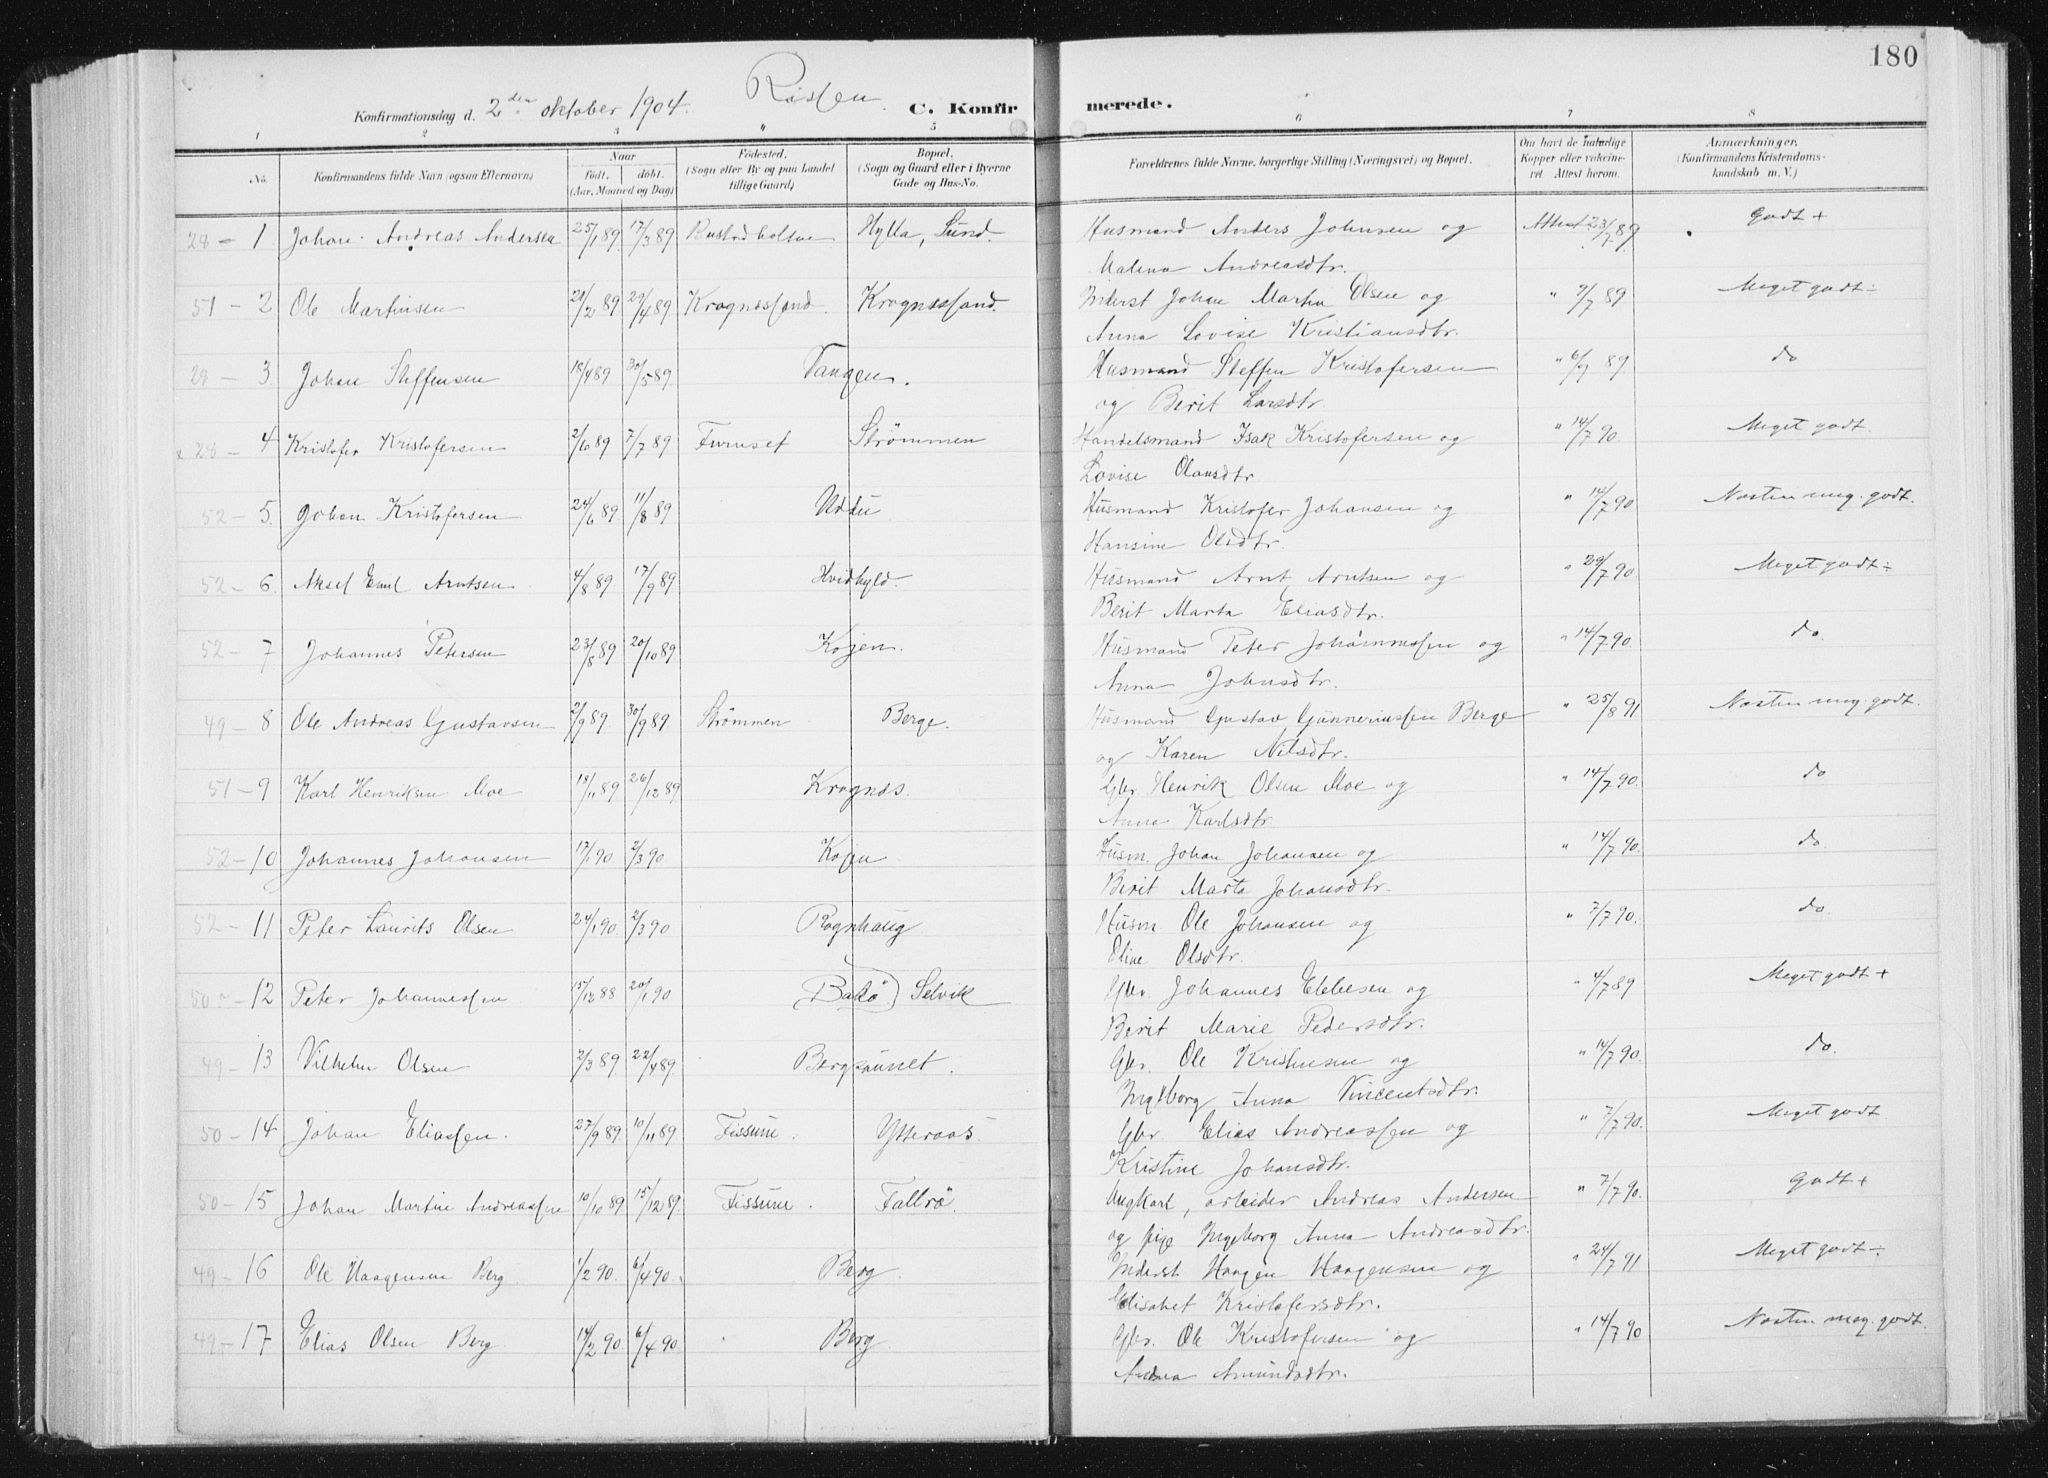 180
Rissen
Konfirmationsdag d. 2den oktober 1904.
C. Konfirmerede.
1 2 3 " 5 6 7 8
No. Konfirmandens fulde Navn (ogsaa Efternavn) Naar født. døbt. (Aar, Maaned og Dag) Fødested. (Sogn eller By og paa Landet tillige Gaard) Bopæl. (Sogn og Gaard eller i Byerne Gade og Hus-No. Forældrenes fulde Navne, borgerlige Stilling (Næringsvei) og Bopæl. Om havt de naturlige Kopper eller vakcineret. Attest herom. Anmærkninger. (Konfirmandens Kristendomskundskab m. V.)
28 - 1. Johan Andreas Andersen 25/1 89 17/3 89 Rustadholtne Hylla, Sund. Husmand Anders Johnsen og Attest 23/7 89. Godt +
Malena Andreasdtr.
51 - 2 Ole Martinsen 20/2 89 29/4 89 Kragnessand. Kragnessand. Inderst Johan Martin Olsen og " 9/7 89 Meget godt ÷
Anna Lovise Kristiansdtr.
29 - 3 Johan Steffensen 18/4 89 30/5 89 Tangen. Husmand Steffen Kristofersen " 6/9 89 do
og Berit Larsdtr.
x 28 - 4 Kristofer Kristofersen 2/6 89 7/7 89 Furuset Strömmen Handelsmand Isak Kristofersen og " 14/7 90. Meget godt.
Lovise Olausdtr.
52 - 5. Johan Kristofersen 24/6 89 11/8 89 Uddu Husmand Kristofer Johansen og " 14/7 90 Næsten meg. godt.
Hansine Olsdtr.
52 - 6. Aksel Emil Arntsen 4/8 89 17/9 89 Hvidhyld. Husmand Arnt Arntsen og " 29/7 90. Meget godt ÷
Berit Marta Eliasdtr.
52 - 7 Johannes Petersen 23/8 89 20/10 89 Kojen. Husmand Peter Johannessen og " 14/7 90. do.
Anna Johnsdtr.
49 - 8 Ole Andreas Gustavsen 2/9 89. 30/9 89 Strömmen Berge. Husmand Gustav Gunneriussen Berge " 25/8 91 Næsten meg. godt.
og Karen Nilsdtr.
51 - 9 Karl Henriksen Moe 18/11 89 26/12 89 Kragnæs. Gbr. Henrik Olsen Moe og " 14/7 90. do
Anna Karlsdtr.
52 - 10 Johannes Johansen 17/1 90 2/3 90 Kojen Husm. Johan Johansen og " 14/7 90. do.
Berit Marta Johansdtr.
52 - 11 Peter Laurits Olsen 24/1 90. 2/3 90 Rognhaug. Husm Ole Johansen og " 7/7 90. do.
Eline Olsdtr.
50 - 12 Peter Johannessen 15/12 88 20/1 90 (Bakö) Selvik Gbr. Johannes Ebbesen og " 4/7 89 Meget godt +
Berit Marie Pedersdtr.
49 - 13 Vilhelm Olsen 2/3 89 22/4 89. Bergsaunet. Gbr. Ole Kristensen og " 14/7 90. do.
Ingeborg Anna Vincentsdtr.
50 - 14 Johan Eliassen. 27/9 89. 10/11 89 Fissum. Ytteraas. Gbr Elias Andreassen og " 7/7 90. Meget godt
Kristine Johansdtr.
50 - 15 Johan Martin Andreassen 10/10 89 15/12 89. Fissum. Fallrö. Ungkarl, arbeider Andreas Andersen " 7/7 90. Godt +
og pige Ingeborg Anna Andreasdtr.
49 - 16 Ole Haagensen Berg. 1/2 90. 6/4 90. Berg. Inderst Haagen Haagensen og " 24/7 91 Meget godt ÷
Elisabet Kristofersdtr.
49 - 17 Elias Olsen Berg. 14/2 90. 6/4 90. Berg. Gbr. Ole Kristofersen og " 14/7 90 Næsten meg. godt.
Andrea Amundsdtr.